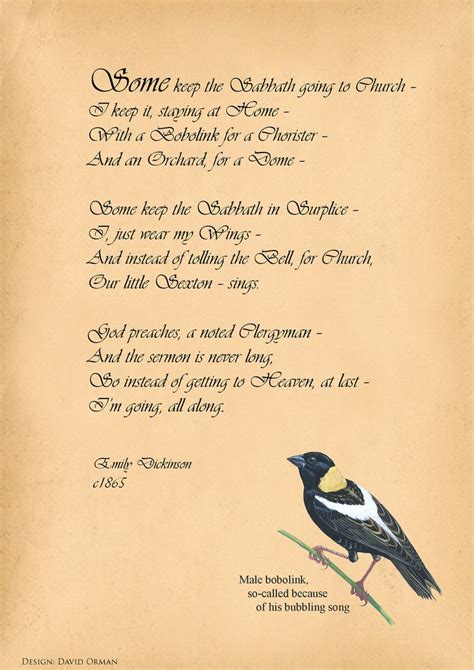 Some keep the Sabbath going to Church –
I keep it, staying at Home –
With a Bobolink for a Chorister –
And an Orchard, for a Dome –
Some keep the Sabbath in Surplice –
I, just wear my Wings –
And instead of tolling the Bell, for Church,
Our little Sexton – sings.
God preaches, a noted Clergyman –
And the sermon is never long,
So instead of getting to Heaven, at last –
I'm going, all along.
Emily Dickinson
c1865
Male bobolink,
so-called because
of his bubbling song
Design: David Orman